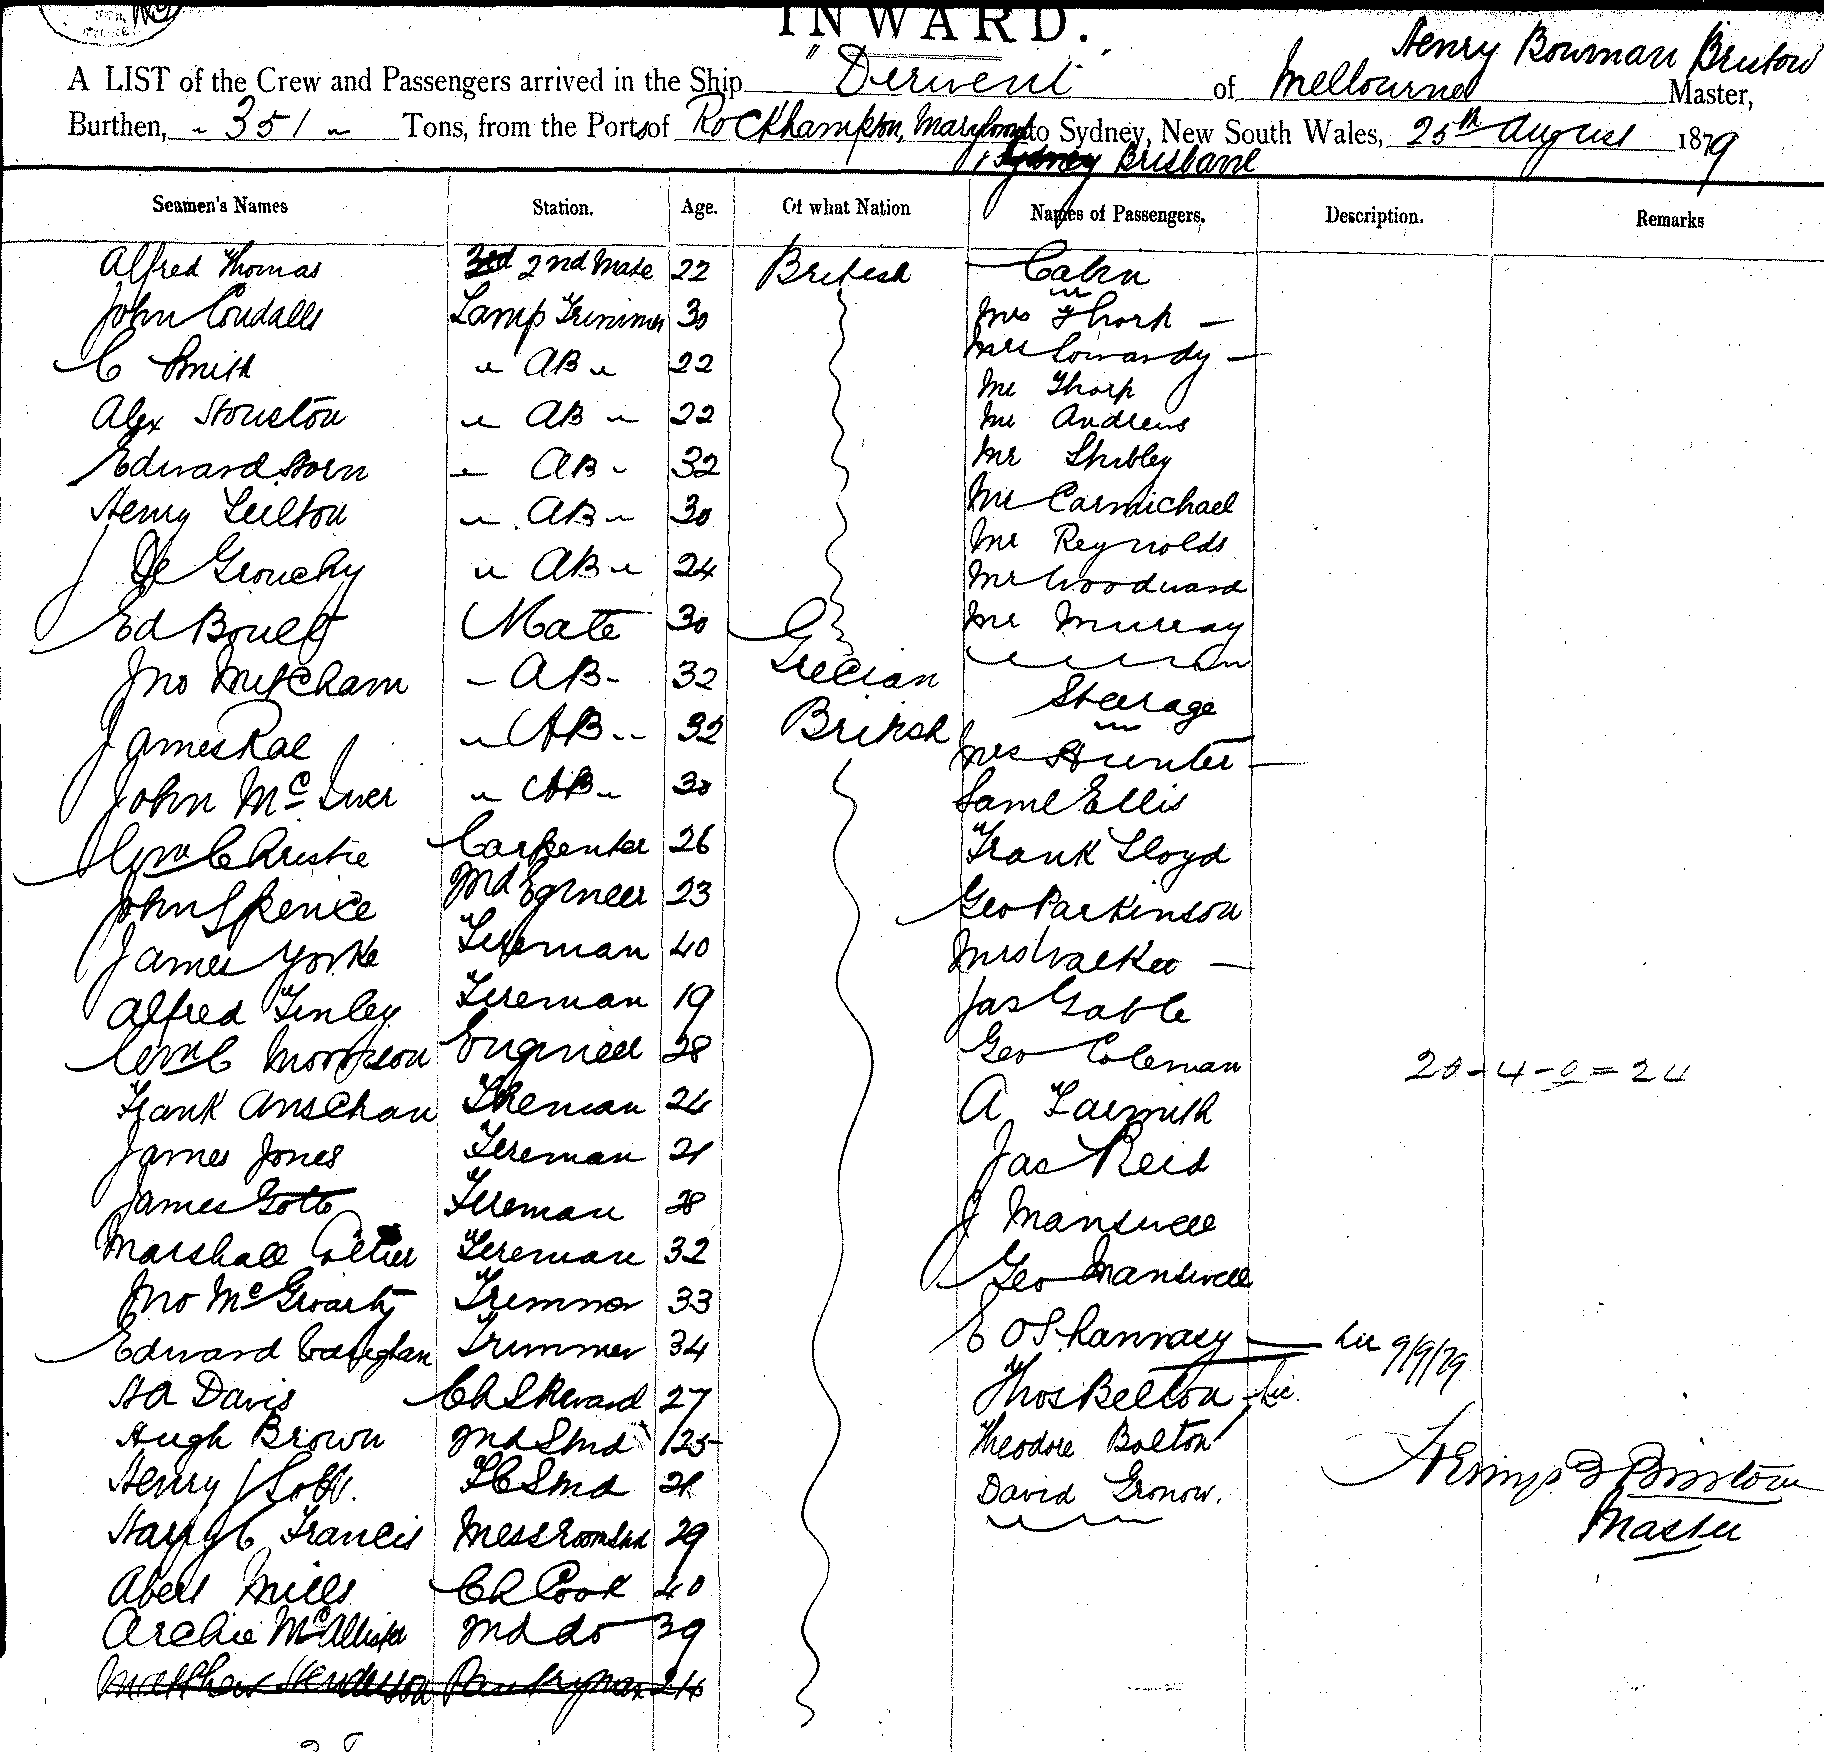 INWARD.
Henry Bowman Bristow
A LIST of the Crew and Passengers arrived in the Ship "Derwent" of Melbourne Master,
Burthen, 351 Tons, from the Ports of Rockhampton, to Sydney, New South Wales, 25th August 1879
Brisbane
Seamen's Names Station. Age. Of what Nation Names of Passengers. Description. Remarks
Alfred Thomas 2nd Mate 22 British Cabin
John Condalls Lamp Trimmer 30 Mrs Thorp
C Smith AB 22 Mrs
Alex Houston AB 22 Mr Thorp
Mr Andrews
Edward Horn AB 32 Mr Shibley
Henry AB 30 Mr Carmichael
Mr Reynolds
J De Grouchy AB 24 Mr Woodward
Ed Mate 30 Mr Murray
Jno Mitcham AB 32 Grecian Steerage
James Rae AB 32 British Mrs Hunter
John McIver AB 30 Saml Ellis
Wm Christie Carpenter 26 Frank Lloyd
John Spence 2nd Engineer 23 Geo Parkinson
James Yorke Fireman 40 Mrs Walker
Alfred Finley Fireman 19 Jas Gable
Wm C Morrison Engineer 28 Geo Coleman
20-4-0=24
Frank Fireman A
James Jones Fireman 21 Jas Reid
James Gotto Fireman 28 J Manswell
Marshall Fireman 32 Geo Manswell
Jno McGroarty Trimmer 33
Edward Vaughan Trimmer 34 E O'Shannasy 9/9/79
HA Davis Ch Steward 27 Thos Belton
Hugh Brown 2nd Stwd 25 Theodore Bolton
Henry J FC Stwd 21 David Gronow.
Henry B Bristow
Master
Harry C Francis Messroom Std 29
Abert Mills Ch Cook 40
Archie McAllister 2nd do 39
Matthew Henderson Pantryman 24